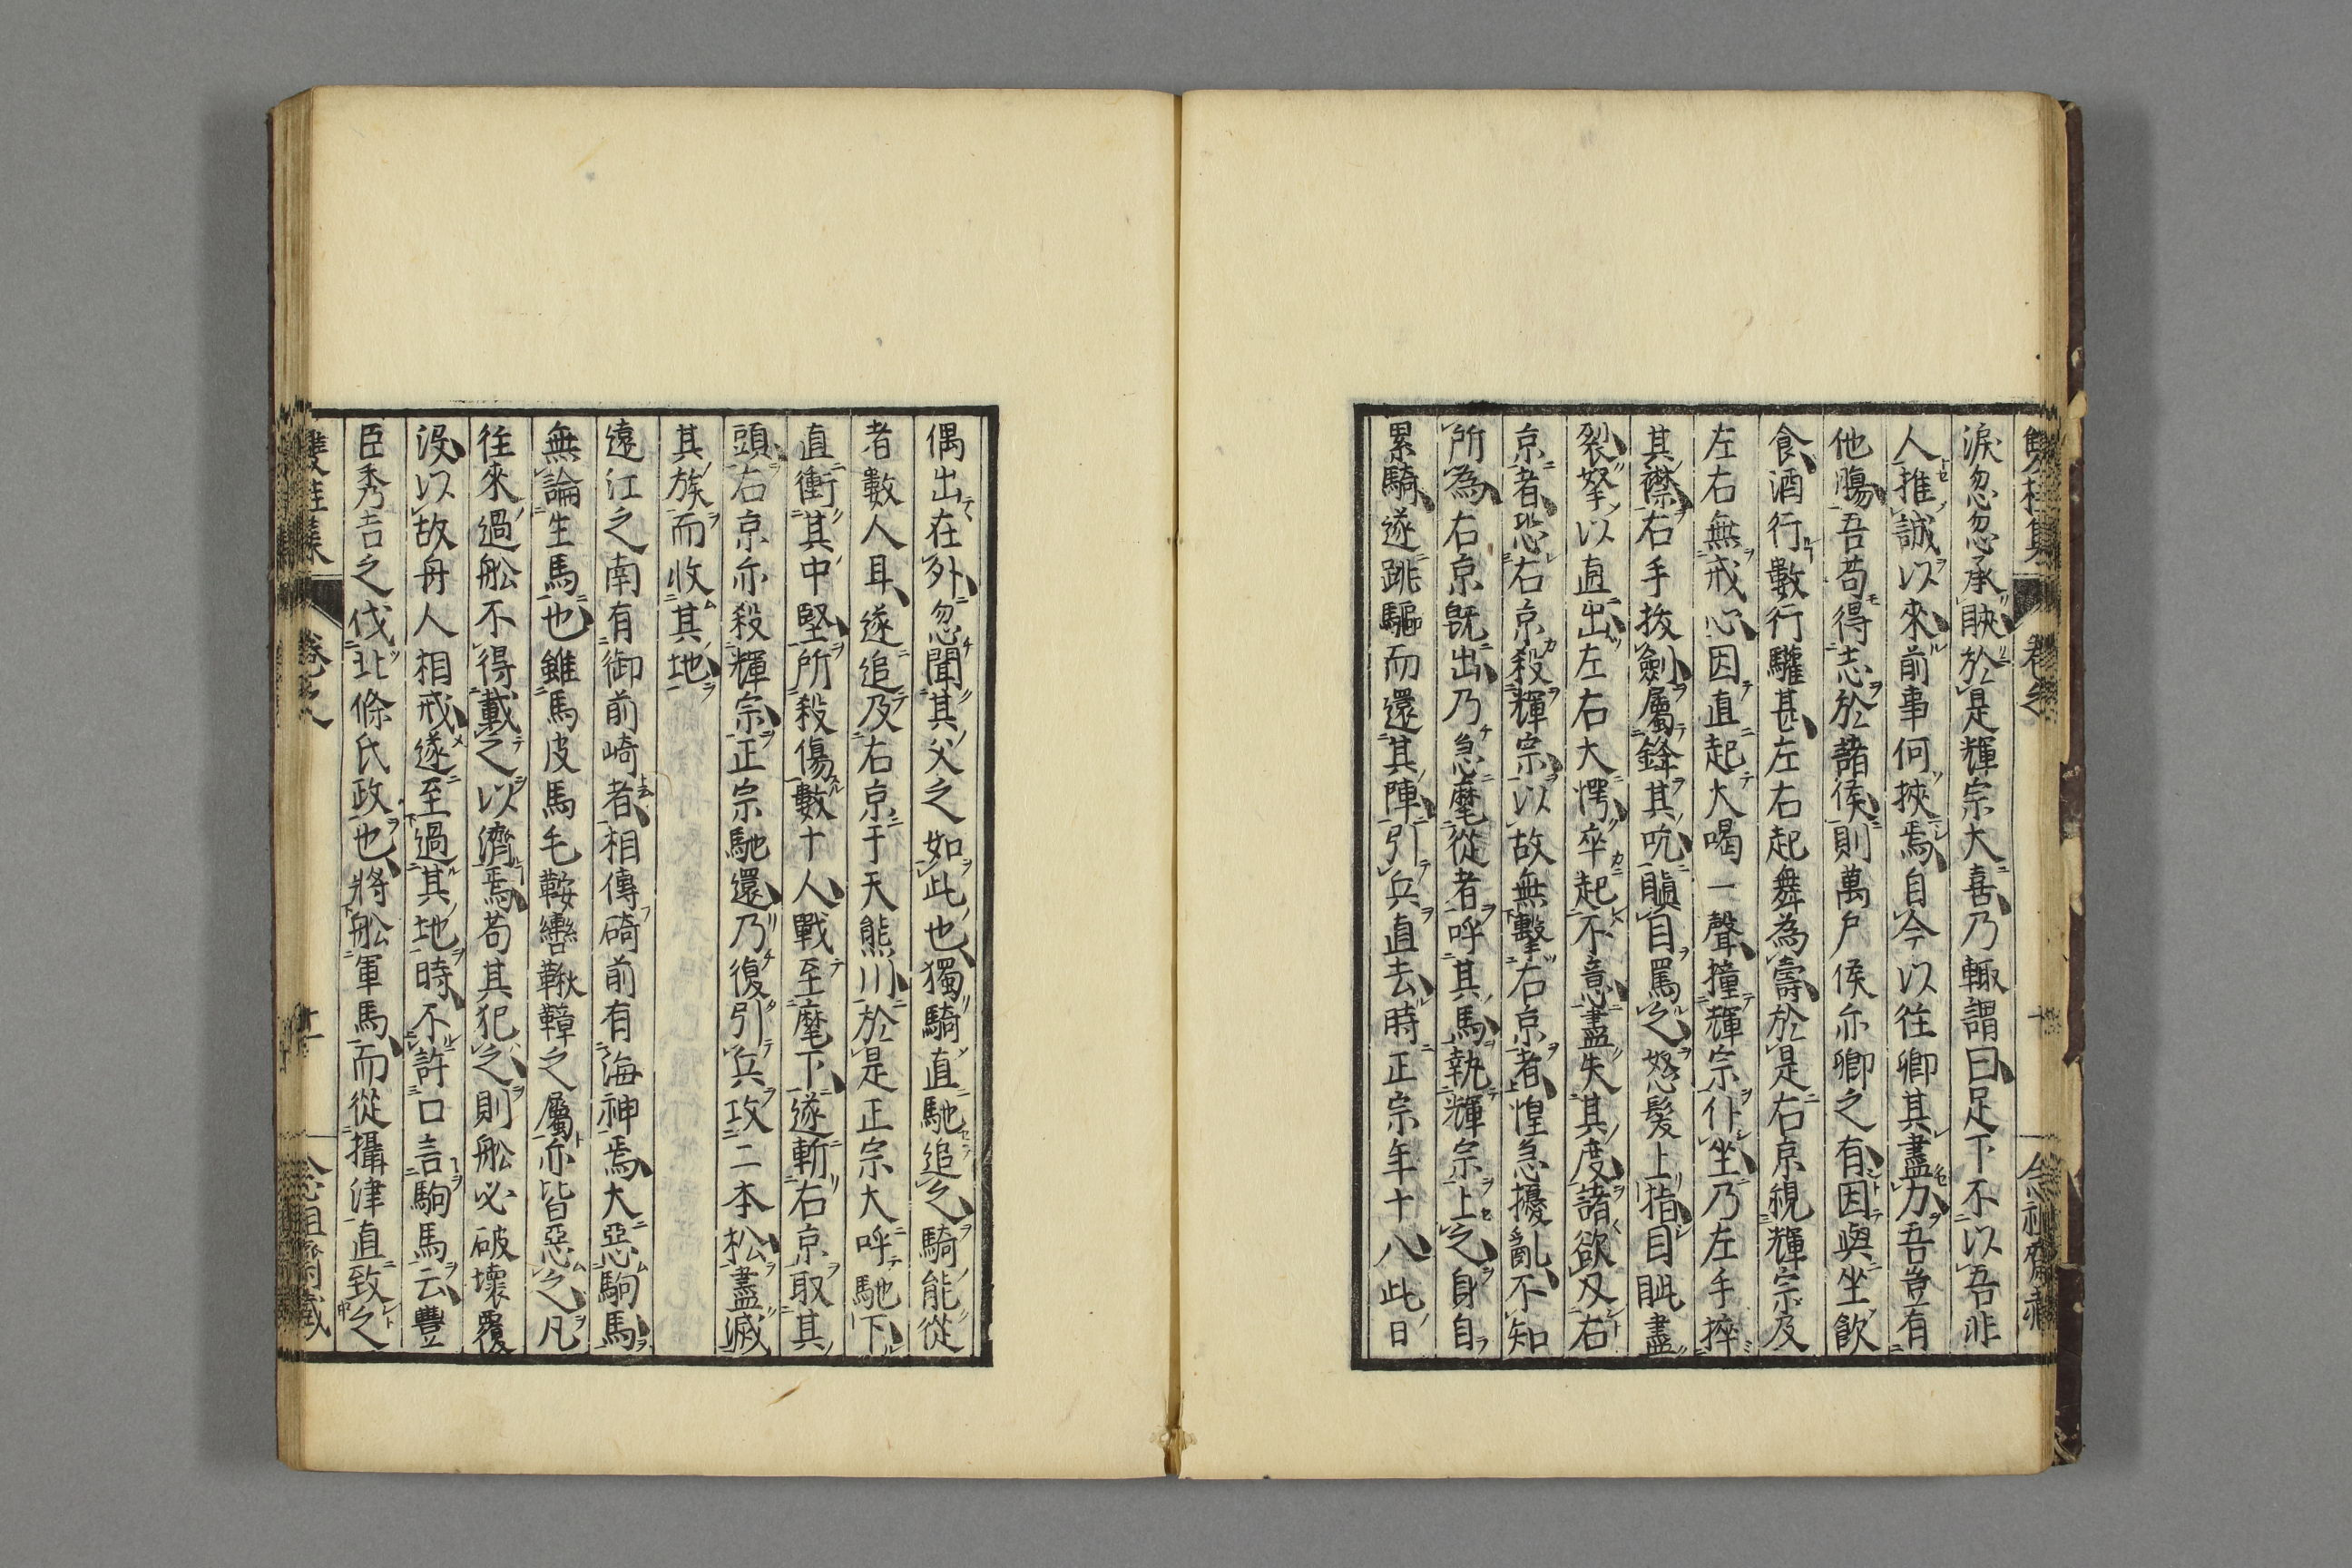 淚忽忽承䀹於是輝宗大喜乃輙謂曰足下不以吾非
人推誠以來前事何挾焉自今以往卿其盡力吾豈有
他腸吾苟得志於諸侯則萬戶侯亦卿之有因與坐飲
食酒行數行驩甚左右起舞為壽於是右京視輝宗及
左右無戒心因直起大喝一聲撞輝宗仆坐乃左手捽
其襟右手拔劍屬鋒其吭瞋目罵之怒髮上指目眦盡
裂拏以直出左右大愕卒起不意盡失其度諸欲及右
京者恐右京殺輝宗以故無擊右京者惶急擾亂不知
所為右京旣出乃急麾從者呼其馬執輝宗上之身自
累騎遂跳驅而還其陣引兵直去時正宗年十八此日
偶出在外忽聞其父之如此也獨騎直馳追之騎能從
者數人耳遂追及右京于天熊川於是正宗大呼馳下
直衝其中堅所殺傷數十人戰至麾下遂斬右京取其
頭右京亦殺輝宗正宗馳還乃復引兵攻二本松盡滅
其族而收其地
遠江之南有御前崎者相傳碕前有海神焉大惡駒馬
無論生馬也雖馬皮馬毛鞍轡鞦鞾之屬亦皆惡之凡
往來過舩不得載之以濟焉苟其犯之則舩必破壞覆
沒以故舟人相戒遂至過其地時不許口言駒馬云豐
臣秀吉之伐北條氏政也將舩軍馬而從攝津直致之